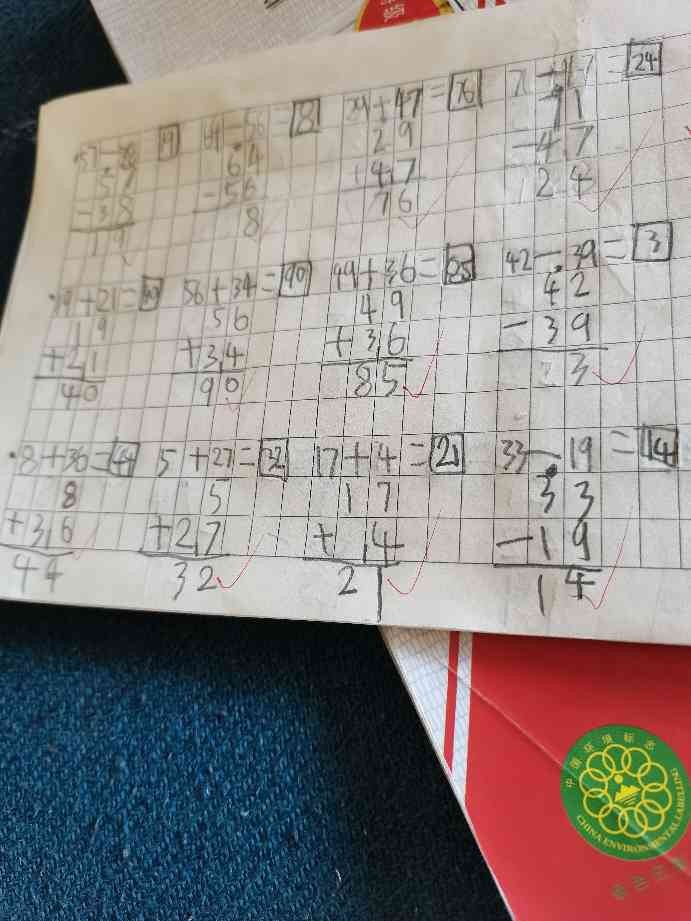 57-38 19 64-56=8 29+47=76 71-47=24
57 64 29 71
-38 -56 +47 -47
19 8 76 24
19+21=40 56+34=90 49+36=85 42-39=3
19 56 49 42
+21 +34 +36 -39
40 90 85 3
8+36=44 5+27=32 17+4=21 33-19=14
8 5 17 33
+36 +27 +4 -19
44 32 21 14
中国环境标志
CHINA ENVIRONMENTAL LABELLING